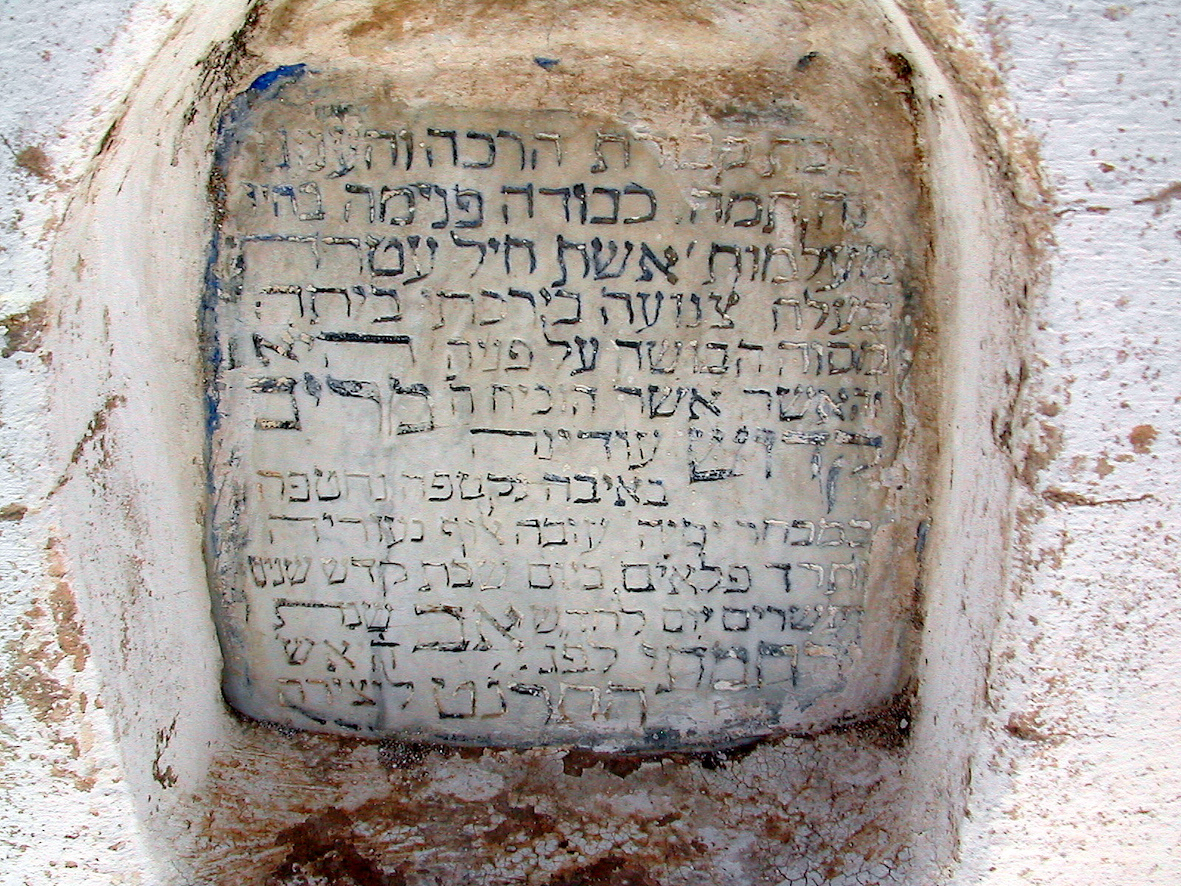 קבורת הרכה והענוגה
התמה כבודה פנימה בהיי
מעלמות אשת חיל עטרת
בעלה צנועה בירכתי ביתה
מסוה הבושה על פניה היא
האשה אשר הוכיח ה מרים
קדוש עודינה
באיבה נקטפה נחטפה
במבחר ימיה עזבה אוף נעוריה
ותרד פלאים ביום שבת קדש שנים
ועשרים יום לחדש אב שנת
לפג ה אש
התרנט ליצירה